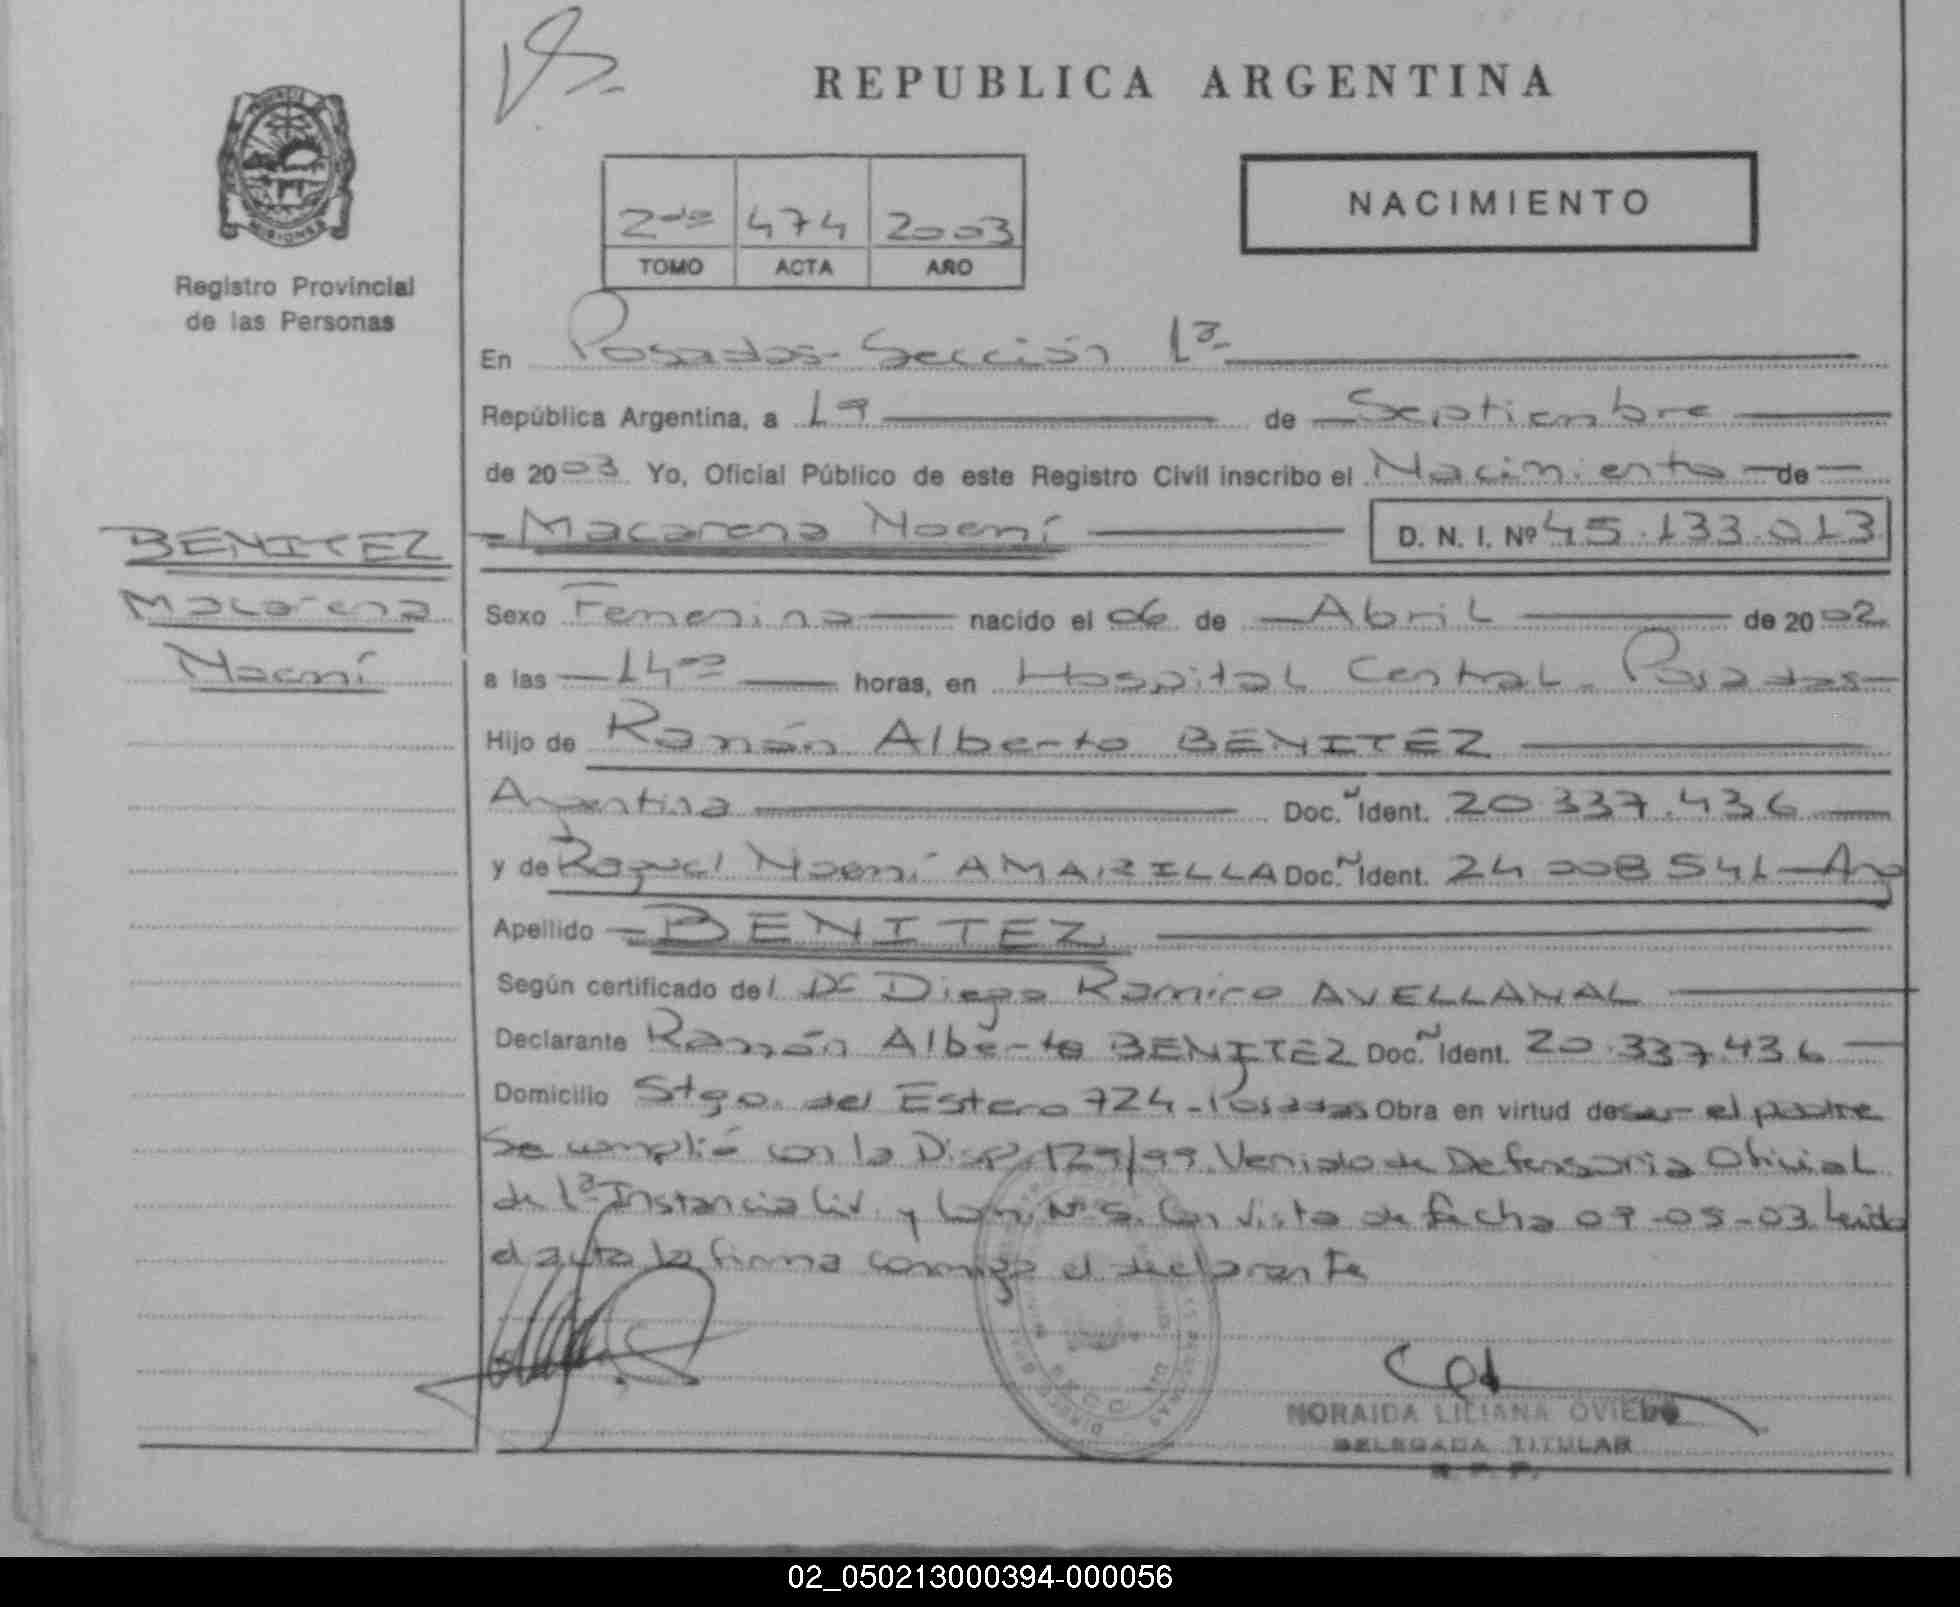 REPUBLICA ARGENTINA
MISIONES
Registro Provincial
de las Personas
2do 474 2003
TOMO ACTA AÑO
NACIMIENTO
En Posadas-Sección 1ª-
República Argentina, a 19 de Septiembre
de 2003 Yo, Oficial Público de este Registro Civil inscribo el Nacimiento de
Macarena Noemí D. N. I. Nº 45.133.013
BENITEZ
Macarena
Noemí
Sexo Femenina nacido el 06 de Abril de 2002
a las 14 horas, en Hospital Central - Posadas-
Hijo de Ramón Alberto BENITEZ
Argentina Doc. Ident. 20.337.436
y de Raquel Noemí AMARILLA Doc. Ident. 24 008 541-Arg
Apellido BENITEZ
Según certificado del Dr Diego Ramiro AVELLANAL
Declarante Ramón Alberto BENITEZ Doc. Ident. 20.337.436
Domicilio Stgo. del Estero 724-Posadas Obra en virtud de ser el padre
Se cumplió con la Disp. 129/99. Venido de Defensoria Oficial
de 1ª Instancia Civ. y Nº 5. Con vista de fecha 09-05-03. Leida
el acta la firma conmigo el declarante
NORAIDA LILIANA OVIEDO
DELEGADA TITULAR
R. P. P.
02_050213000394-000056